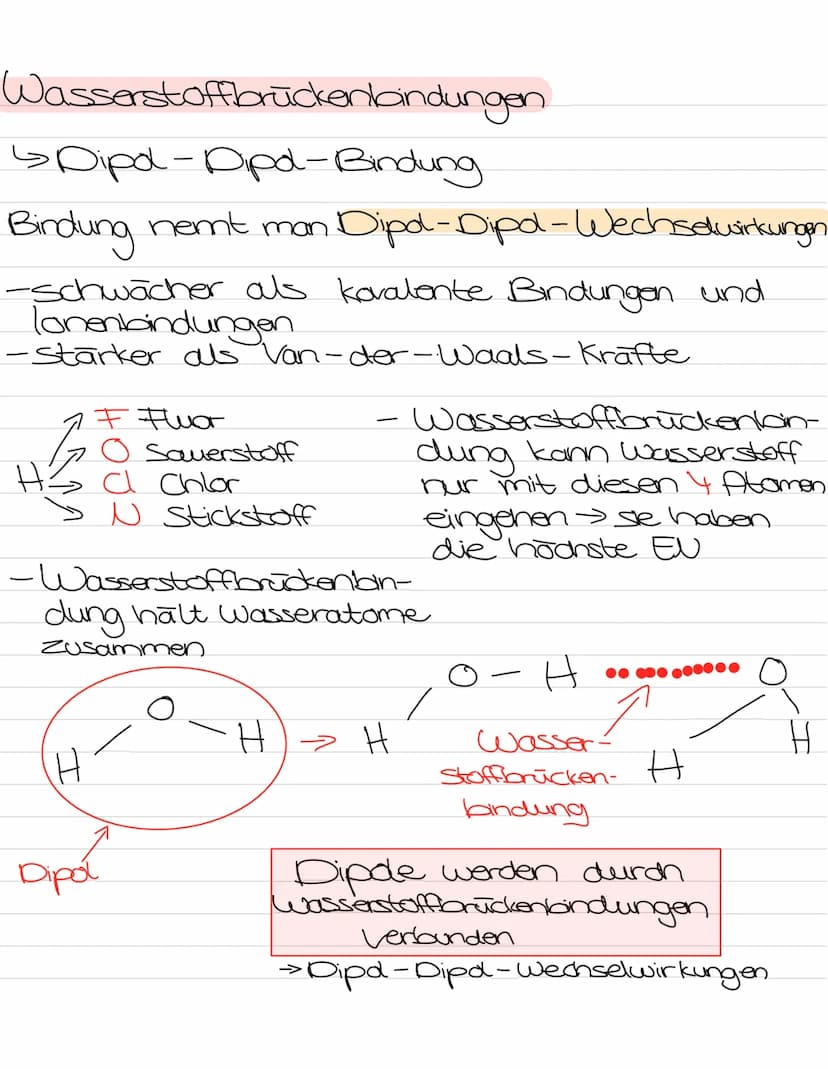 Wasserstoffbrückenbindungen
↳ Dipol-Dipol-Bindung
Bindung nennt man Dipol-Dipol-Wechselwirkungen
- schwächer als kovalente Bindungen und
Ionenbindungen
- Stärker als Van-der-Waals-Kräfte
H
F Fluor
O Sauerstoff
Cl Chlor
N Stickstoff
- Wasserstoffbrückenbin-
dung kann Wasserstoff
nur mit diesen 4 Atomen
eingehen → sie haben
die höchste EU
- Wasserstoffbrückenbin-
dung hält Wasseratome
zusammen
H O H
→ H O - H O H H
Wasser-
stoffbrücken-
bindung
Dipol
Dipole werden durch
Wasserstoffbrückenbindungen
verbunden
→ Dipol-Dipol-Wechselwirkungen